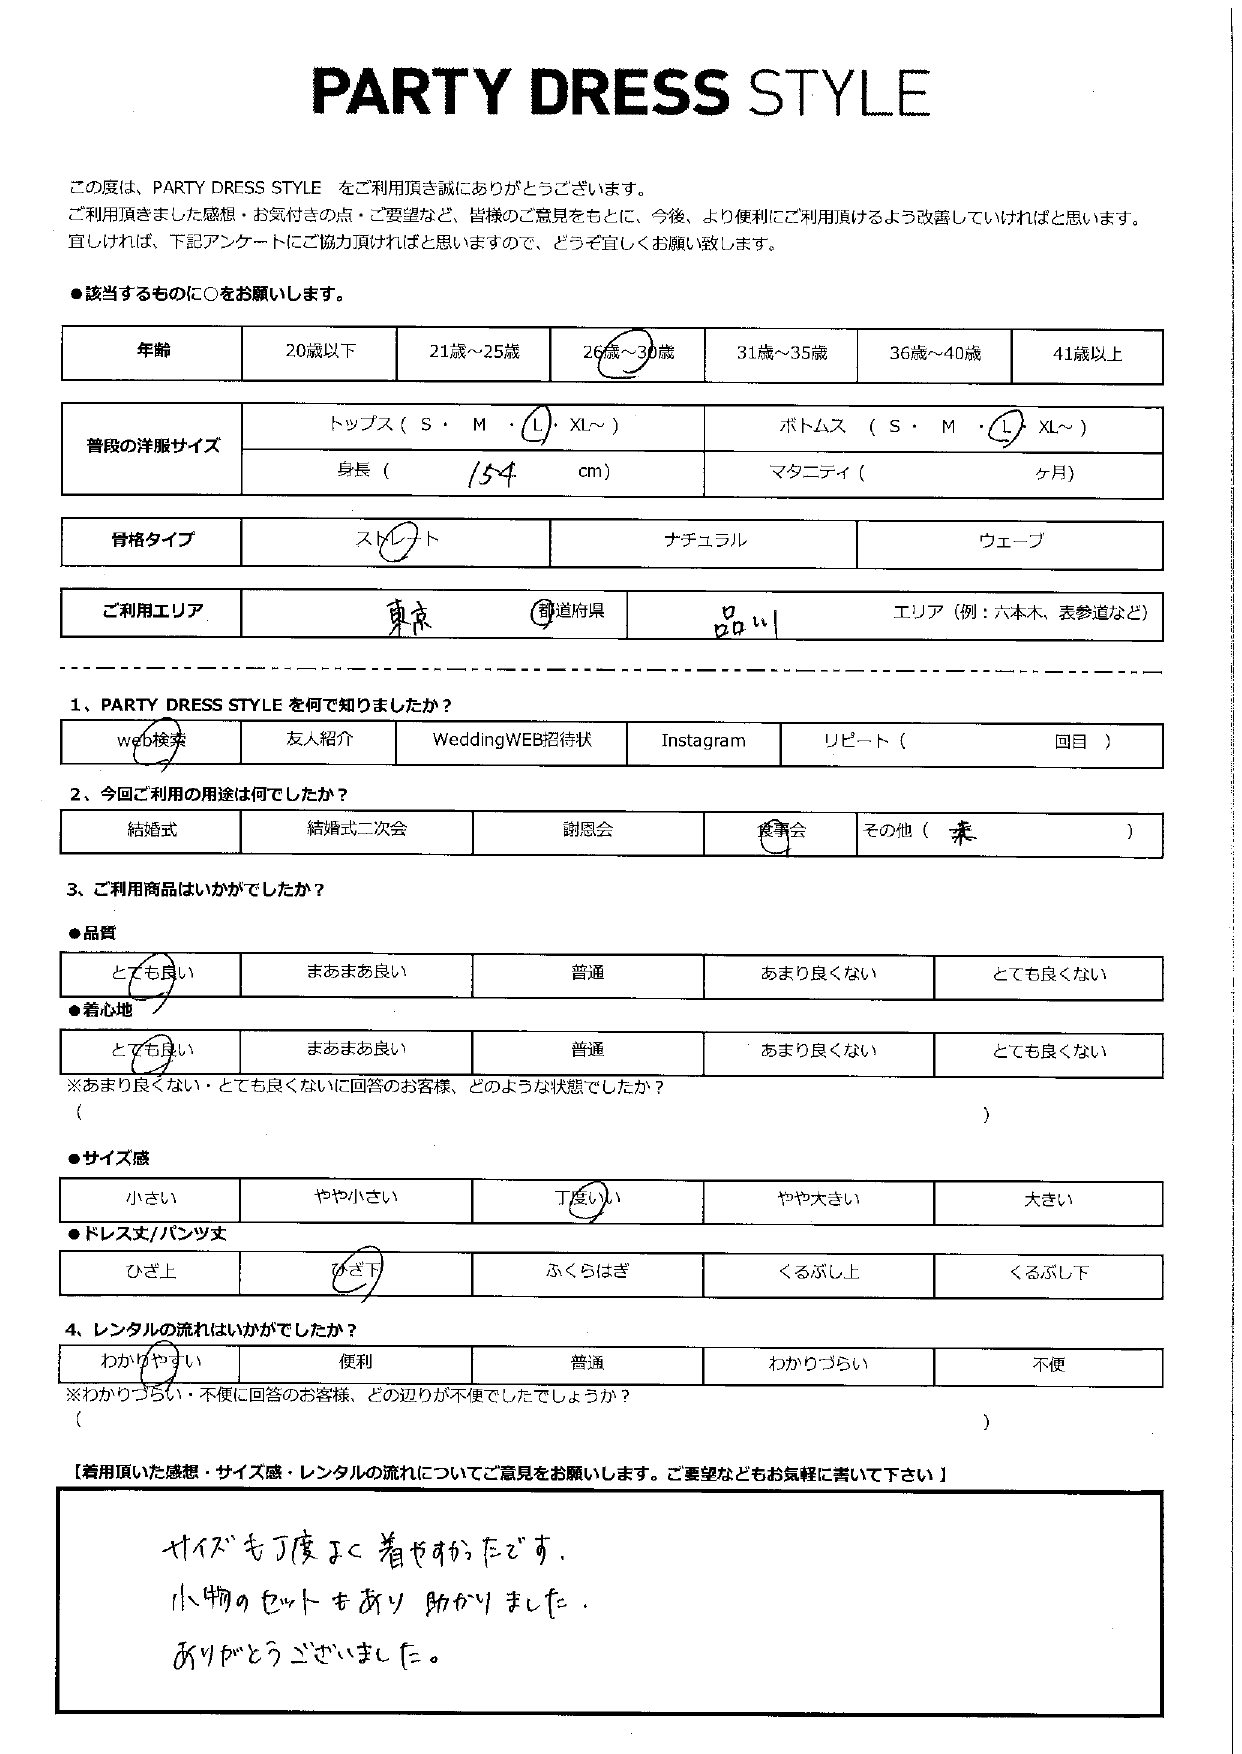 PARTY DRESS STYLE
この度は、PARTY DRESS STYLE をご利用頂き誠にありがとうございます。
ご利用頂きました感想・お気付きの点・ご要望など、皆様のご意見をもとに、今後、より便利にご利用頂けるよう改善していければと思います。
宜しければ、下記アンケートにご協力頂ければと思いますので、どうぞ宜しくお願い致します。
●該当するものに○をお願いします。
年齢 20歳以下 21歳～25歳 26歳～30歳 31歳～35歳 36歳～40歳 41歳以上
普段の洋服サイズ トップス ( S ・ M ・ L ・ XL～ ) ボトムス ( S ・ M ・ L ・ XL～ )
身長 ( 154 cm) マタニティ ( ヶ月)
骨格タイプ ストレート ナチュラル ウェーブ
ご利用エリア 東京 都道府県 品川 エリア（例：六本木、表参道など）
1、PARTY DRESS STYLE を何で知りましたか？
web検索 友人紹介 WeddingWEB招待状 Instagram リピート ( 回目 )
2、今回ご利用の用途は何でしたか？
結婚式 結婚式二次会 謝恩会 食事会 その他 ( )
3、ご利用商品はいかがでしたか？
●品質
とても良い まあまあ良い 普通 あまり良くない とても良くない
●着心地
とても良い まあまあ良い 普通 あまり良くない とても良くない
※あまり良くない・とても良くないに回答のお客様、どのような状態でしたか？
( )
●サイズ感
小さい やや小さい 丁度いい やや大きい 大きい
●ドレス丈/パンツ丈
ひざ上 ひざ下 ふくらはぎ くるぶし上 くるぶし下
4、レンタルの流れはいかがでしたか？
わかりやすい 便利 普通 わかりづらい 不便
※わかりづらい・不便に回答のお客様、どの辺りが不便でしたでしょうか？
( )
【着用頂いた感想・サイズ感・レンタルの流れについてご意見をお願いします。ご要望などもお気軽に書いて下さい 】
サイズも丁度よく着やすかったです.
小物のセットもあり助かりました.
ありがとうございました。